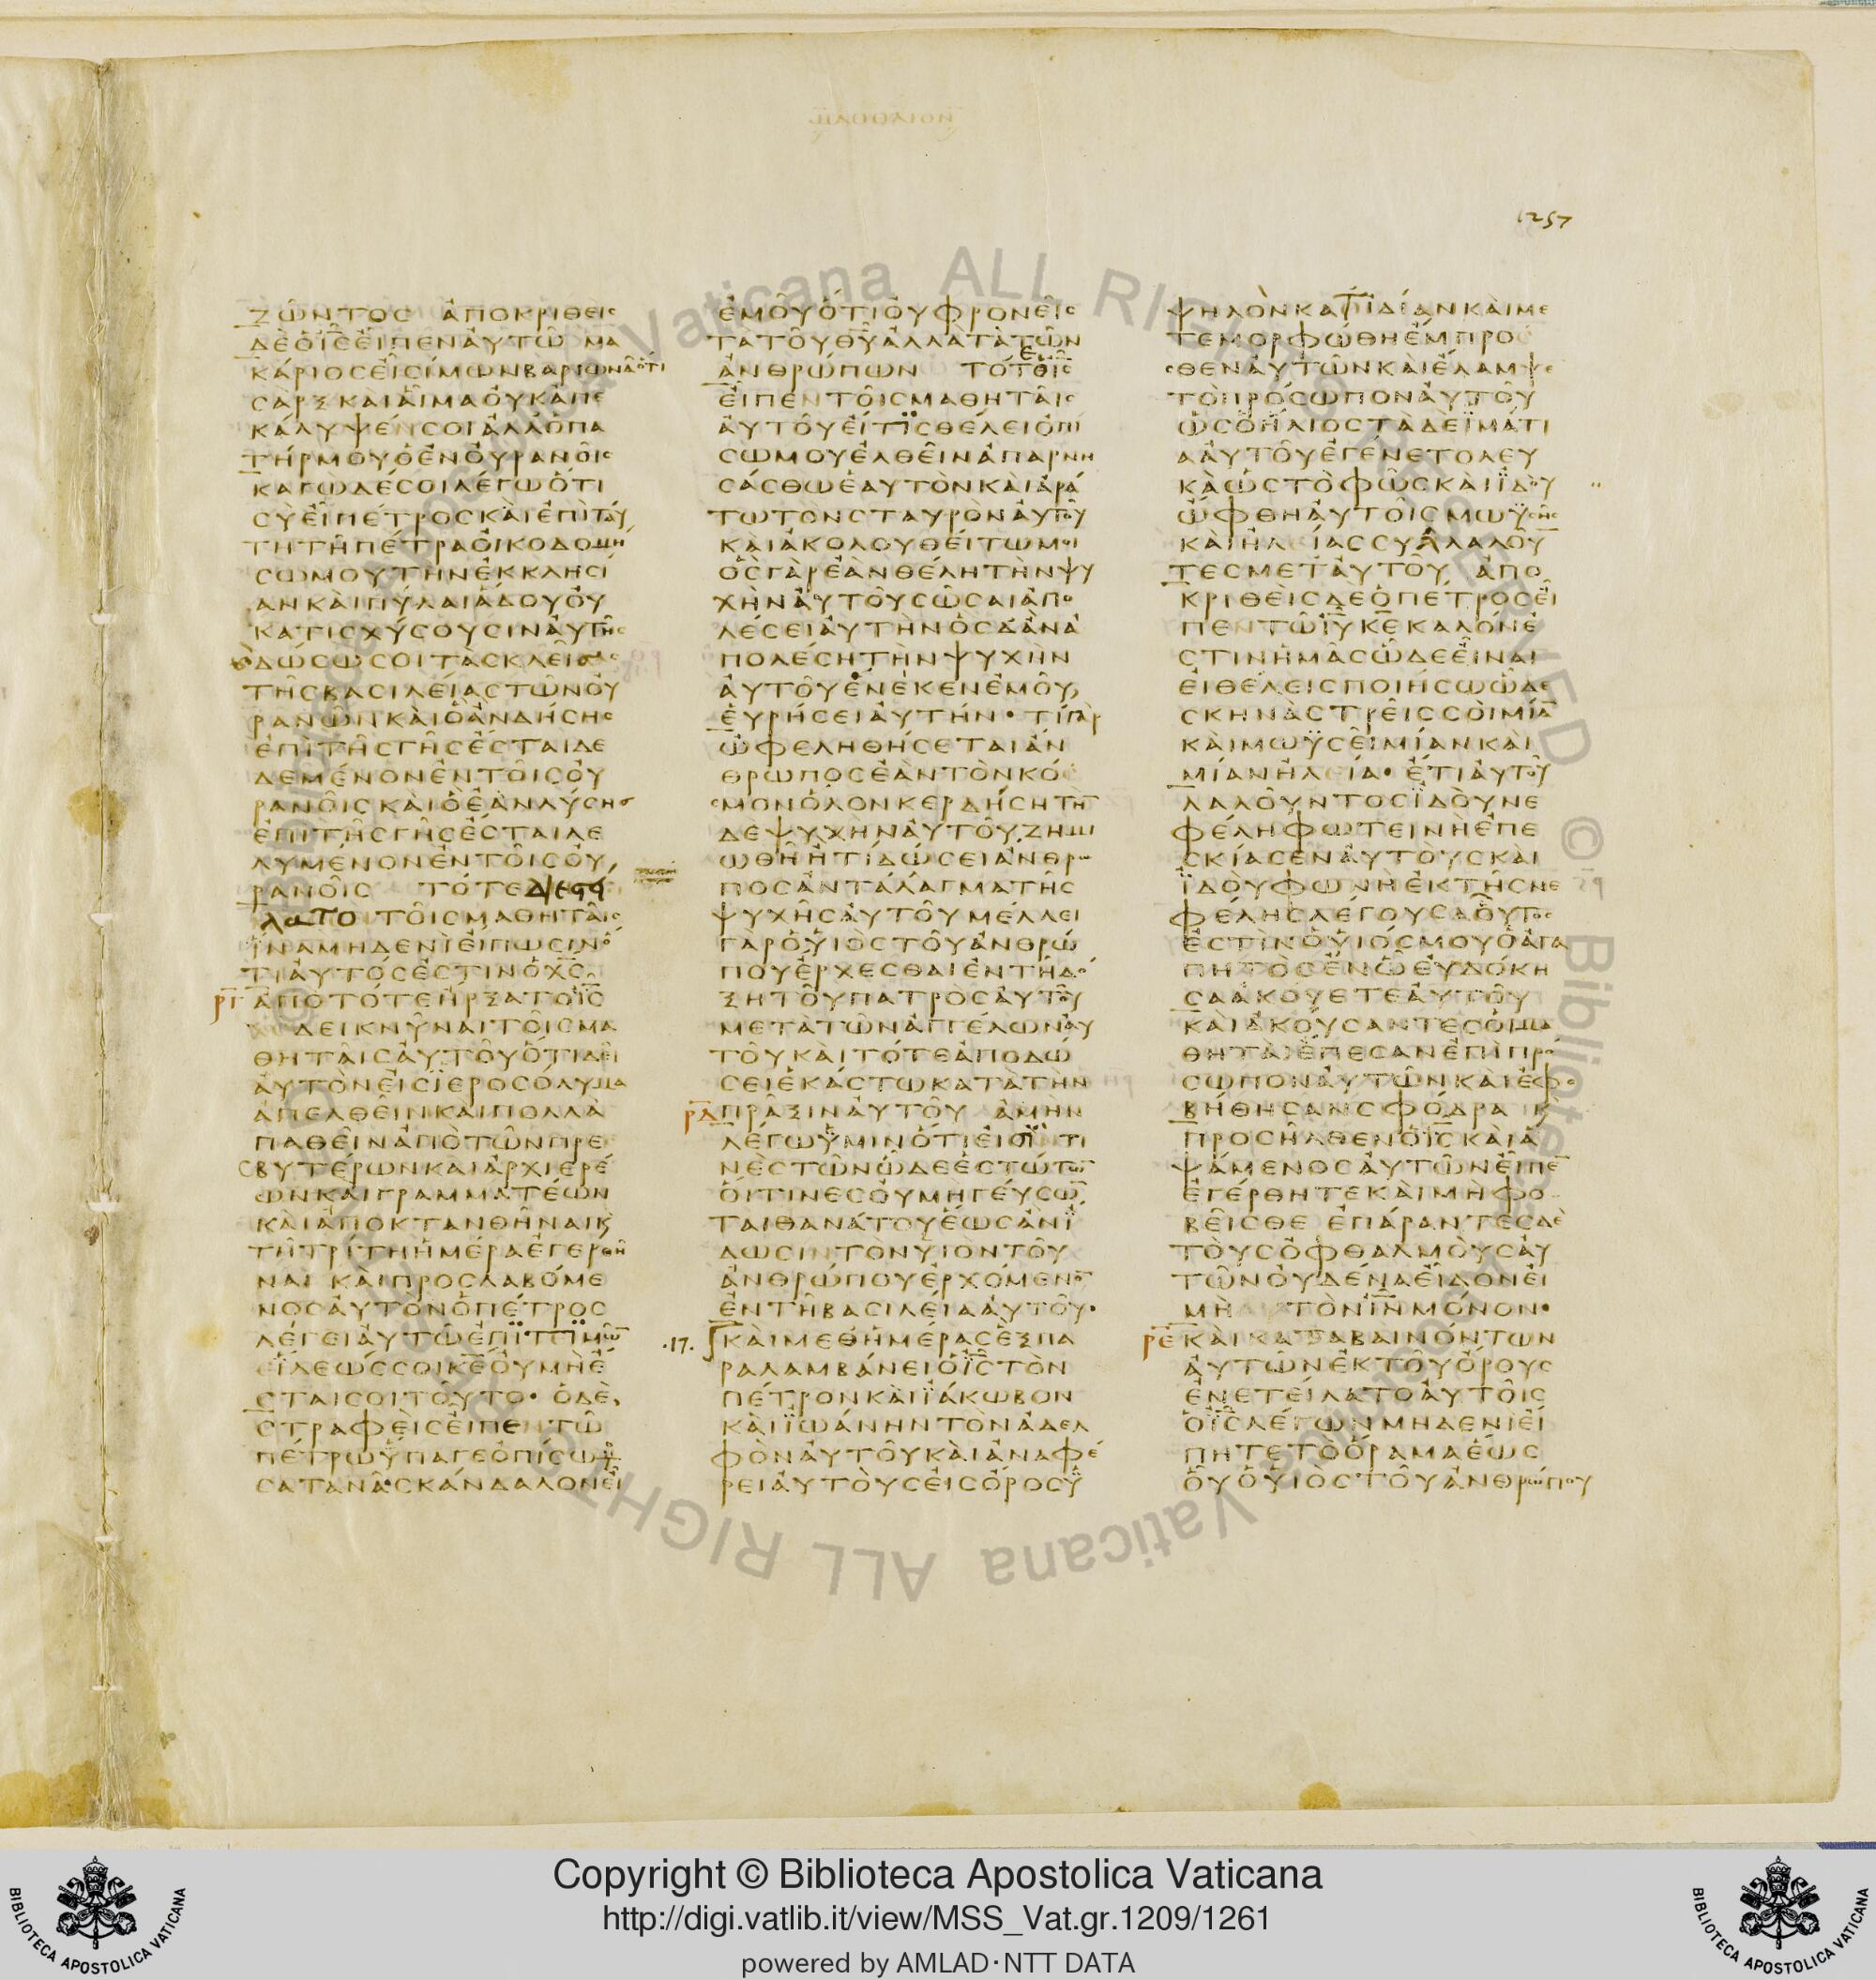 1257
ΖΩΝΤΟΣ ΑΠΟΚΡΙΘΕΙΣ
ΔΕ Ο ΙΣ ΕΙΠΕΝ ΑΥΤΩ ΜΑ
ΚΑΡΙΟΣ ΕΙ ΣΙΜΩΝ ΒΑΡΙΩΝΑ ΟΤΙ
ΣΑΡΞ ΚΑΙ ΑΙΜΑ ΟΥΚ ΑΠΕ
ΚΑΛΥΨΕΝ ΣΟΙ ΑΛΛ Ο ΠΑ
ΤΗΡ ΜΟΥ Ο ΕΝ ΟΥΡΑΝΟΙΣ
ΚΑΓΩ ΔΕ ΣΟΙ ΛΕΓΩ ΟΤΙ
ΣΥ ΕΙ ΠΕΤΡΟΣ ΚΑΙ ΕΠΙ ΤΑΥ
ΤΗ ΤΗ ΠΕΤΡΑ ΟΙΚΟΔΟΜΗ
ΣΩ ΜΟΥ ΤΗΝ ΕΚΚΛΗΣΙ
ΑΝ ΚΑΙ ΠΥΛΑΙ ΑΔΟΥ ΟΥ
ΚΑΤΙΣΧΥΣΟΥΣΙΝ ΑΥΤΗΣ
ΔΩΣΩ ΣΟΙ ΤΑΣ ΚΛΕΙΔΑΣ
ΤΗΣ ΒΑΣΙΛΕΙΑΣ ΤΩΝ ΟΥ
ΡΑΝΩΝ ΚΑΙ Ο ΑΝ ΔΗΣΗΣ
ΕΠΙ ΤΗΣ ΓΗΣ ΕΣΤΑΙ ΔΕ
ΔΕΜΕΝΟΝ ΕΝ ΤΟΙΣ ΟΥ
ΡΑΝΟΙΣ ΚΑΙ Ο ΕΑΝ ΛΥΣΗΣ
ΕΠΙ ΤΗΣ ΓΗΣ ΕΣΤΑΙ ΛΕ
ΛΥΜΕΝΟΝ ΕΝ ΤΟΙΣ ΟΥ
ΡΑΝΟΙΣ ΤΟΤΕ ΔΙΕΣΤΕΙ
ΛΑΤΟ ΤΟΙΣ ΜΑΘΗΤΑΙΣ
ΙΝΑ ΜΗΔΕΝΙ ΕΙΠΩΣΙΝ Ο
ΤΙ ΑΥΤΟΣ ΕΣΤΙΝ Ο ΧΣ
ΡΓ ΑΠΟ ΤΟΤΕ ΗΡΞΑΤΟ ΙΣ
ΔΕΙΚΝΥΝΑΙ ΤΟΙΣ ΜΑ
ΘΗΤΑΙΣ ΑΥΤΟΥ ΟΤΙ ΔΕΙ
ΑΥΤΟΝ ΕΙΣ ΙΕΡΟΣΟΛΥΜΑ
ΑΠΕΛΘΕΙΝ ΚΑΙ ΠΟΛΛΑ
ΠΑΘΕΙΝ ΑΠΟ ΤΩΝ ΠΡΕ
ΣΒΥΤΕΡΩΝ ΚΑΙ ΑΡΧΙΕΡΕ
ΩΝ ΚΑΙ ΓΡΑΜΜΑΤΕΩΝ
ΚΑΙ ΑΠΟΚΤΑΝΘΗΝΑΙ Κ
ΤΗ ΤΡΙΤΗ ΗΜΕΡΑ ΕΓΕΡΘΗ
ΝΑΙ ΚΑΙ ΠΡΟΣΛΑΒΟΜΕ
ΝΟΣ ΑΥΤΟΝ Ο ΠΕΤΡΟΣ
ΛΕΓΕΙ ΑΥΤΩ ΕΠΙΤΙΜΩ
ΕΙΛΕΩΣ ΣΟΙ ΚΕ ΟΥ ΜΗ Ε
ΣΤΑΙ ΣΟΙ ΤΟΥΤΟ· Ο ΔΕ
ΣΤΡΑΦΕΙΣ ΕΙΠΕΝ ΤΩ
ΠΕΤΡΩ ΥΠΑΓΕ ΟΠΙΣΩ Μ
ΣΑΤΑΝΑ ΣΚΑΝΔΑΛΟΝ ΕΙ
ΕΜΟΥ ΟΤΙ ΟΥ ΦΡΟΝΕΙΣ
ΤΑ ΤΟΥ ΘΥ ΑΛΛΑ ΤΑ ΤΩΝ
ΑΝΘΡΩΠΩΝ ΤΟΤΕ ΙΣ
ΕΙΠΕΝ ΤΟΙΣ ΜΑΘΗΤΑΙΣ
ΑΥΤΟΥ ΕΙ ΤΙΣ ΘΕΛΕΙ ΟΠΙ
ΣΩ ΜΟΥ ΕΛΘΕΙΝ ΑΠΑΡΝΗ
ΣΑΣΘΩ ΕΑΥΤΟΝ ΚΑΙ ΑΡΑ
ΤΩ ΤΟΝ ΣΤΑΥΡΟΝ ΑΥΤΟΥ
ΚΑΙ ΑΚΟΛΟΥΘΕΙΤΩ ΜΟΙ
ΟΣ ΓΑΡ ΕΑΝ ΘΕΛΗ ΤΗΝ ΨΥ
ΧΗΝ ΑΥΤΟΥ ΣΩΣΑΙ ΑΠΟ
ΛΕΣΕΙ ΑΥΤΗΝ ΟΣ Δ ΑΝ Α
ΠΟΛΕΣΗ ΤΗΝ ΨΥΧΗΝ
ΑΥΤΟΥ ΕΝΕΚΕΝ ΕΜΟΥ
ΕΥΡΗΣΕΙ ΑΥΤΗΝ· ΤΙ ΓΑΡ
ΩΦΕΛΗΘΗΣΕΤΑΙ ΑΝ
ΘΡΩΠΟΣ ΕΑΝ ΤΟΝ ΚΟ
ΣΜΟΝ ΟΛΟΝ ΚΕΡΔΗΣΗ ΤΗ
ΔΕ ΨΥΧΗΝ ΑΥΤΟΥ ΖΗΜΙ
ΩΘΗ Η ΤΙ ΔΩΣΕΙ ΑΝΘΡΩ
ΠΟΣ ΑΝΤΑΛΑΓΜΑ ΤΗΣ
ΨΥΧΗΣ ΑΥΤΟΥ ΜΕΛΛΕΙ
ΓΑΡ Ο ΥΙΟΣ ΤΟΥ ΑΝΘΡΩ
ΠΟΥ ΕΡΧΕΣΘΑΙ ΕΝ ΤΗ ΔΟ
ΞΗ ΤΟΥ ΠΑΤΡΟΣ ΑΥΤΟΥ
ΜΕΤΑ ΤΩΝ ΑΓΓΕΛΩΝ ΑΥ
ΤΟΥ ΚΑΙ ΤΟΤΕ ΑΠΟΔΩ
ΣΕΙ ΕΚΑΣΤΩ ΚΑΤΑ ΤΗΝ
ΡΔ ΠΡΑΞΙΝ ΑΥΤΟΥ ΑΜΗΝ
ΛΕΓΩ ΥΜΙΝ ΟΤΙ ΕΙΣΙ ΤΙ
ΝΕΣ ΤΩΝ ΩΔΕ ΕΣΤΩΤΩ
ΟΙΤΙΝΕΣ ΟΥ ΜΗ ΓΕΥΣΩ
ΤΑΙ ΘΑΝΑΤΟΥ ΕΩΣ ΑΝ Ι
ΔΩΣΙΝ ΤΟΝ ΥΙΟΝ ΤΟΥ
ΑΝΘΡΩΠΟΥ ΕΡΧΟΜΕΝΟ
ΕΝ ΤΗ ΒΑΣΙΛΕΙΑ ΑΥΤΟΥ·
·17· ΚΑΙ ΜΕΘ ΗΜΕΡΑΣ ΕΞ ΠΑ
ΡΑΛΑΜΒΑΝΕΙ Ο ΙΣ ΤΟΝ
ΠΕΤΡΟΝ ΚΑΙ ΙΑΚΩΒΟΝ
ΚΑΙ ΙΩΑΝΗΝ ΤΟΝ ΑΔΕΛ
ΦΟΝ ΑΥΤΟΥ ΚΑΙ ΑΝΑΦΕ
ΡΕΙ ΑΥΤΟΥΣ ΕΙΣ ΟΡΟΣ Υ
ΨΗΛΟΝ ΚΑΤ ΙΔΙΑΝ ΚΑΙ ΜΕ
ΤΕΜΟΡΦΩΘΗ ΕΜΠΡΟ
ΣΘΕΝ ΑΥΤΩΝ ΚΑΙ ΕΛΑΜΨΕ
ΤΟ ΠΡΟΣΩΠΟΝ ΑΥΤΟΥ
ΩΣ Ο ΗΛΙΟΣ ΤΑ ΔΕ ΙΜΑΤΙ
Α ΑΥΤΟΥ ΕΓΕΝΕΤΟ ΛΕΥ
ΚΑ ΩΣ ΤΟ ΦΩΣ ΚΑΙ ΙΔΟΥ
ΩΦΘΗ ΑΥΤΟΙΣ ΜΩΥΣΗΣ
ΚΑΙ ΗΛΕΙΑΣ ΣΥΛΛΑΛΟΥ
ΤΕΣ ΜΕΤ ΑΥΤΟΥ ΑΠΟ
ΚΡΙΘΕΙΣ ΔΕ Ο ΠΕΤΡΟΣ ΕΙ
ΠΕΝ ΤΩ ΙΥ ΚΕ ΚΑΛΟΝ Ε
ΣΤΙΝ ΗΜΑΣ ΩΔΕ ΕΙΝΑΙ
ΕΙ ΘΕΛΕΙΣ ΠΟΙΗΣΩ ΩΔΕ
ΣΚΗΝΑΣ ΤΡΕΙΣ ΣΟΙ ΜΙΑ
ΚΑΙ ΜΩΥΣΕΙ ΜΙΑΝ ΚΑΙ
ΜΙΑΝ ΗΛΕΙΑ· ΕΤΙ ΑΥΤΟΥ
ΛΑΛΟΥΝΤΟΣ ΙΔΟΥ ΝΕ
ΦΕΛΗ ΦΩΤΕΙΝΗ ΕΠΕ
ΣΚΙΑΣΕΝ ΑΥΤΟΥΣ ΚΑΙ
ΙΔΟΥ ΦΩΝΗ ΕΚ ΤΗΣ ΝΕ
ΦΕΛΗΣ ΛΕΓΟΥΣΑ ΟΥΤΟΣ
ΕΣΤΙΝ Ο ΥΙΟΣ ΜΟΥ Ο ΑΓΑ
ΠΗΤΟΣ ΕΝ Ω ΕΥΔΟΚΗ
ΣΑ ΑΚΟΥΕΤΕ ΑΥΤΟΥ
ΚΑΙ ΑΚΟΥΣΑΝΤΕΣ ΟΙ ΜΑ
ΘΗΤΑΙ ΕΠΕΣΑΝ ΕΠΙ ΠΡΟ
ΣΩΠΟΝ ΑΥΤΩΝ ΚΑΙ ΕΦΟ
ΒΗΘΗΣΑΝ ΣΦΟΔΡΑ Κ
ΠΡΟΣΗΛΘΕΝ Ο ΙΣ ΚΑΙ Α
ΨΑΜΕΝΟΣ ΑΥΤΩΝ ΕΙΠΕ
ΕΓΕΡΘΗΤΕ ΚΑΙ ΜΗ ΦΟ
ΒΕΙΣΘΕ ΕΠΑΡΑΝΤΕΣ ΔΕ
ΤΟΥΣ ΟΦΘΑΛΜΟΥΣ ΑΥ
ΤΩΝ ΟΥΔΕΝΑ ΕΙΔΟΝ ΕΙ
ΜΗ ΤΟΝ ΙΝ ΜΟΝΟΝ·
ΡΕ ΚΑΙ ΚΑΤΑΒΑΙΝΟΝΤΩΝ
ΑΥΤΩΝ ΕΚ ΤΟΥ ΟΡΟΥΣ
ΕΝΕΤΕΙΛΑΤΟ ΑΥΤΟΙΣ
Ο ΙΣ ΛΕΓΩΝ ΜΗΔΕΝΙ ΕΙ
ΠΗΤΕ ΤΟ ΟΡΑΜΑ ΕΩΣ
ΟΥ Ο ΥΙΟΣ ΤΟΥ ΑΝΘΡΩΠΟΥ
Copyright © Biblioteca Apostolica Vaticana
http://digi.vatlib.it/view/MSS_Vat.gr.1209/1261
powered by AMLAD·NTT DATA
BIBLIOTECA APOSTOLICA VATICANA
BIBLIOTECA APOSTOLICA VATICANA